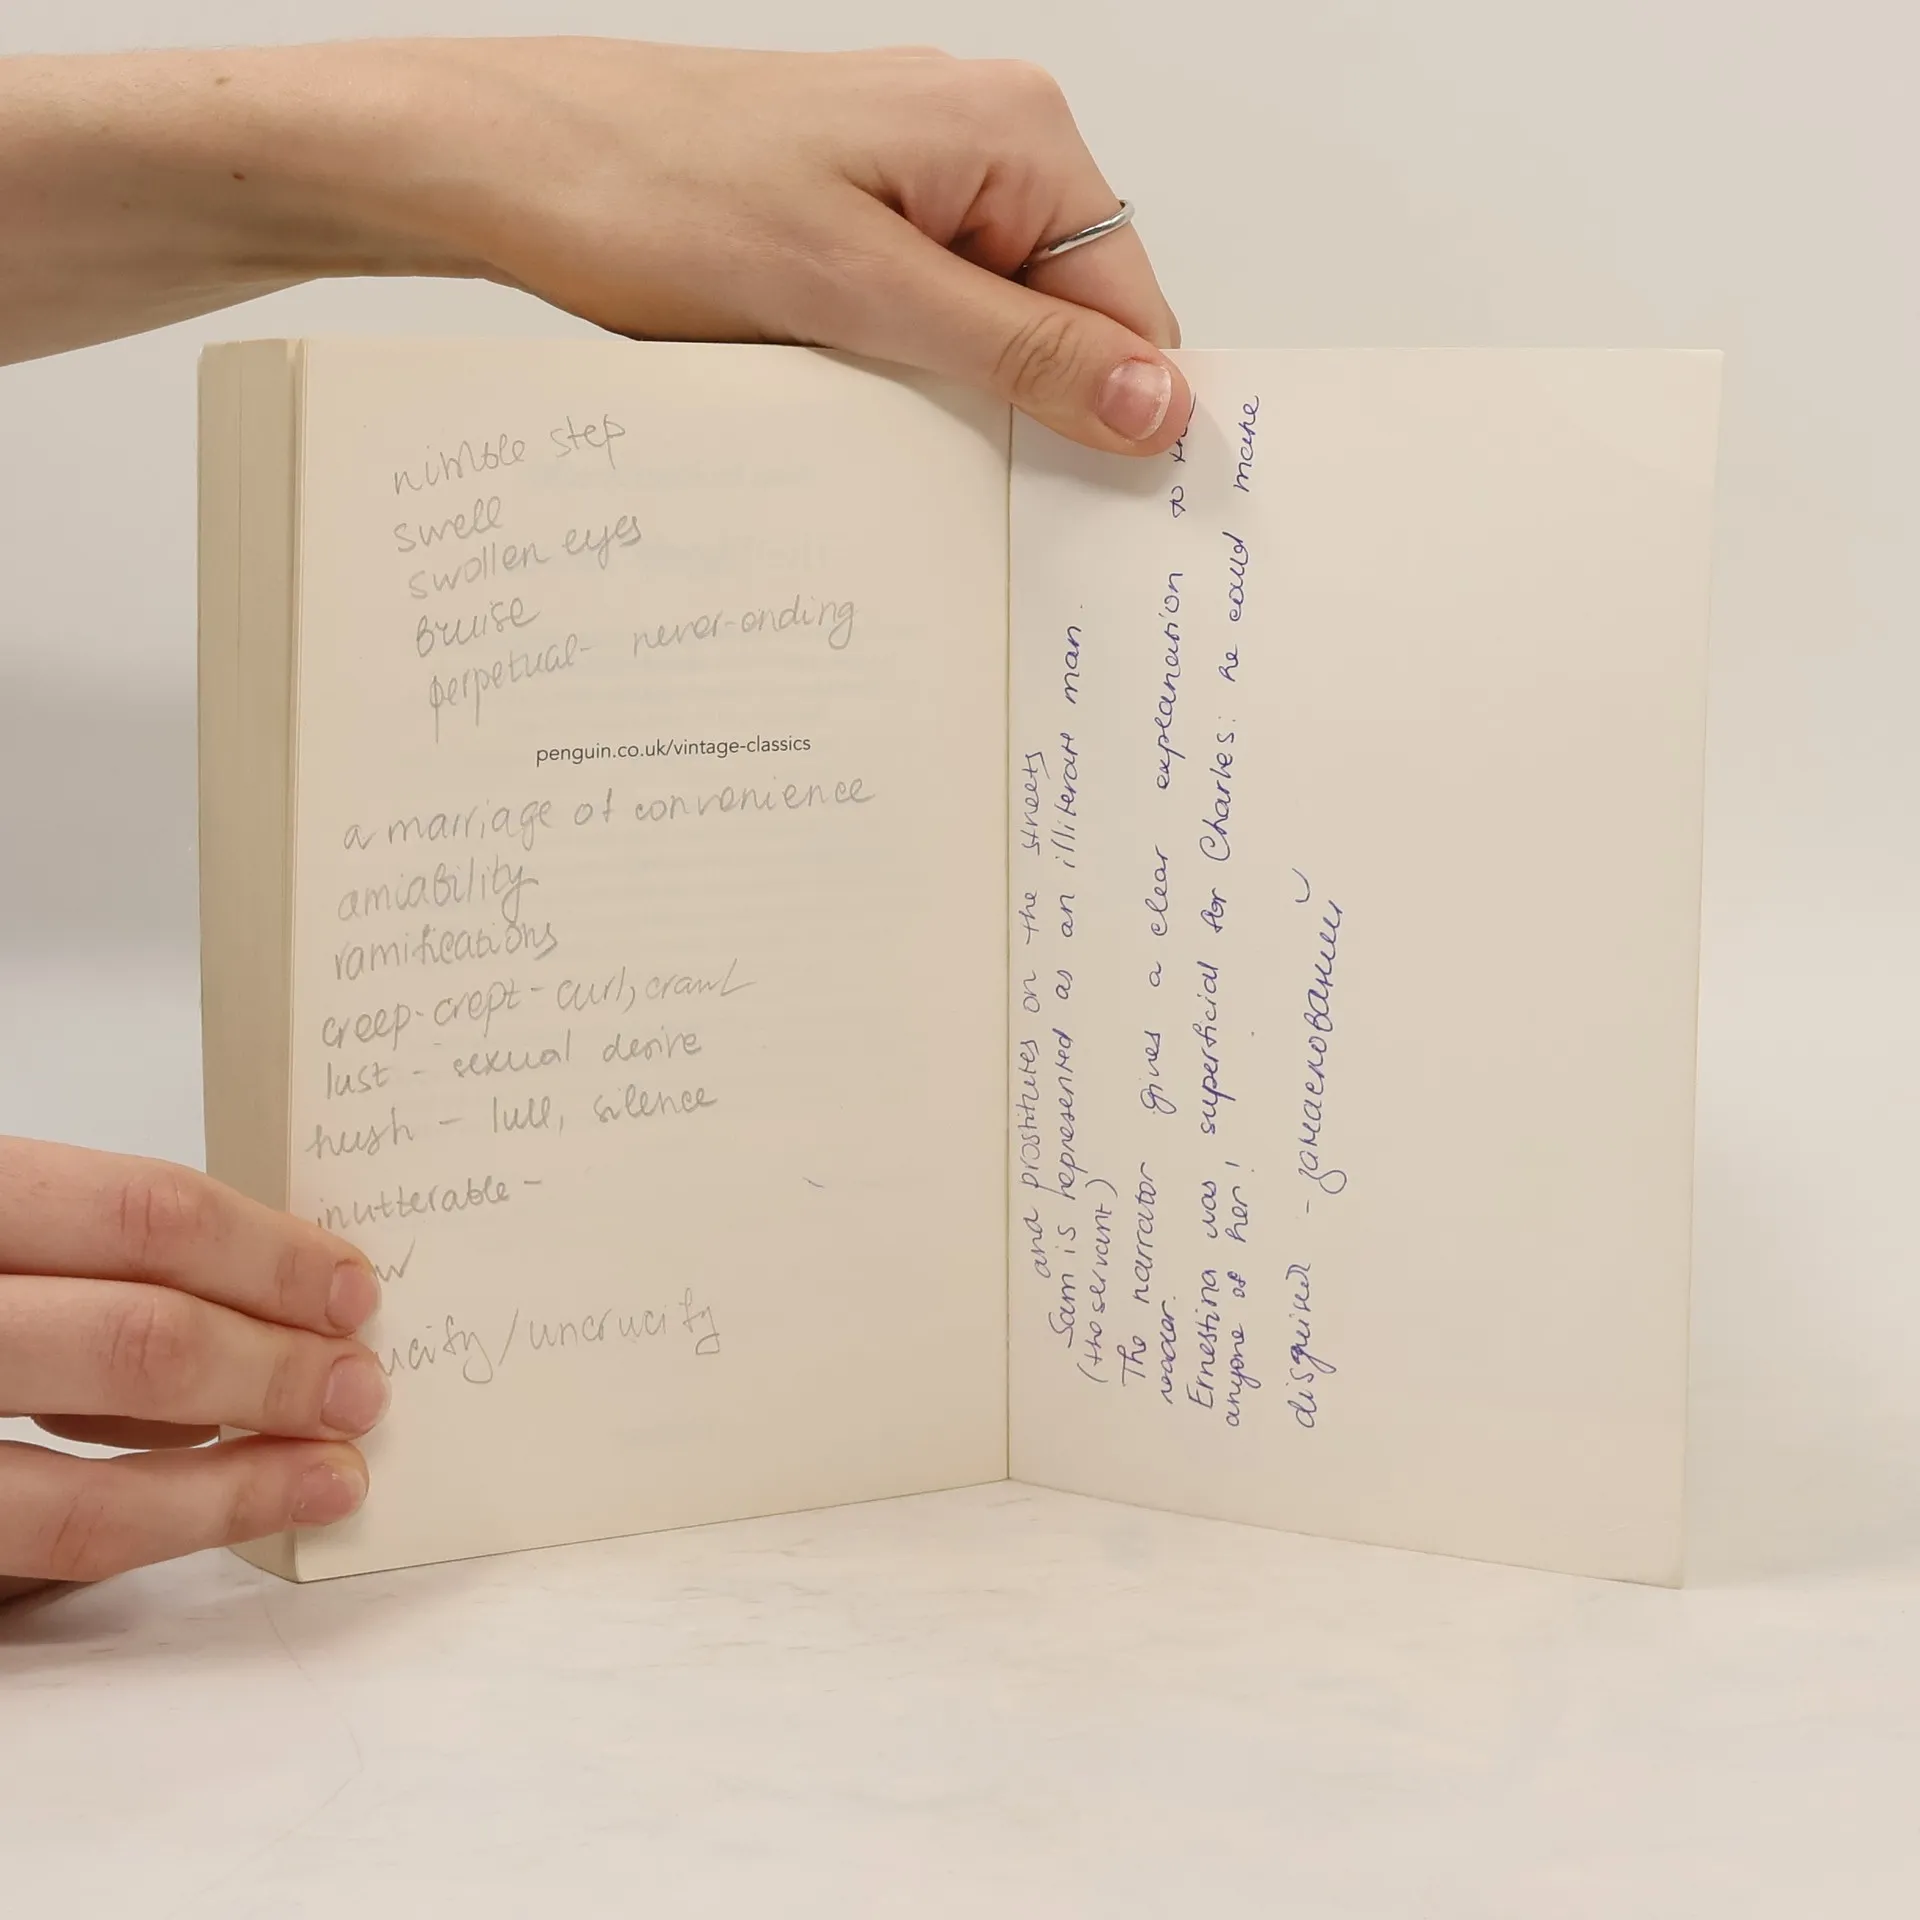 nimble step
swell
swollen eyes
bruise
perpetual - never-ending
penguin.co.uk/vintage-classics
a marriage of convenience
amiability
ramifications
creep-crept - curl, crawl
lust - sexual desire
hush - lull, silence
inutterable -
/uncrucify
and prostitutes on the streets
Sam is represented as an illiterate man.
(the servant)
The narrator gives a clear explanation to the
reader.
Ernestina was superficial for Charles: he could make
anyone of her!
disguised - замаскований